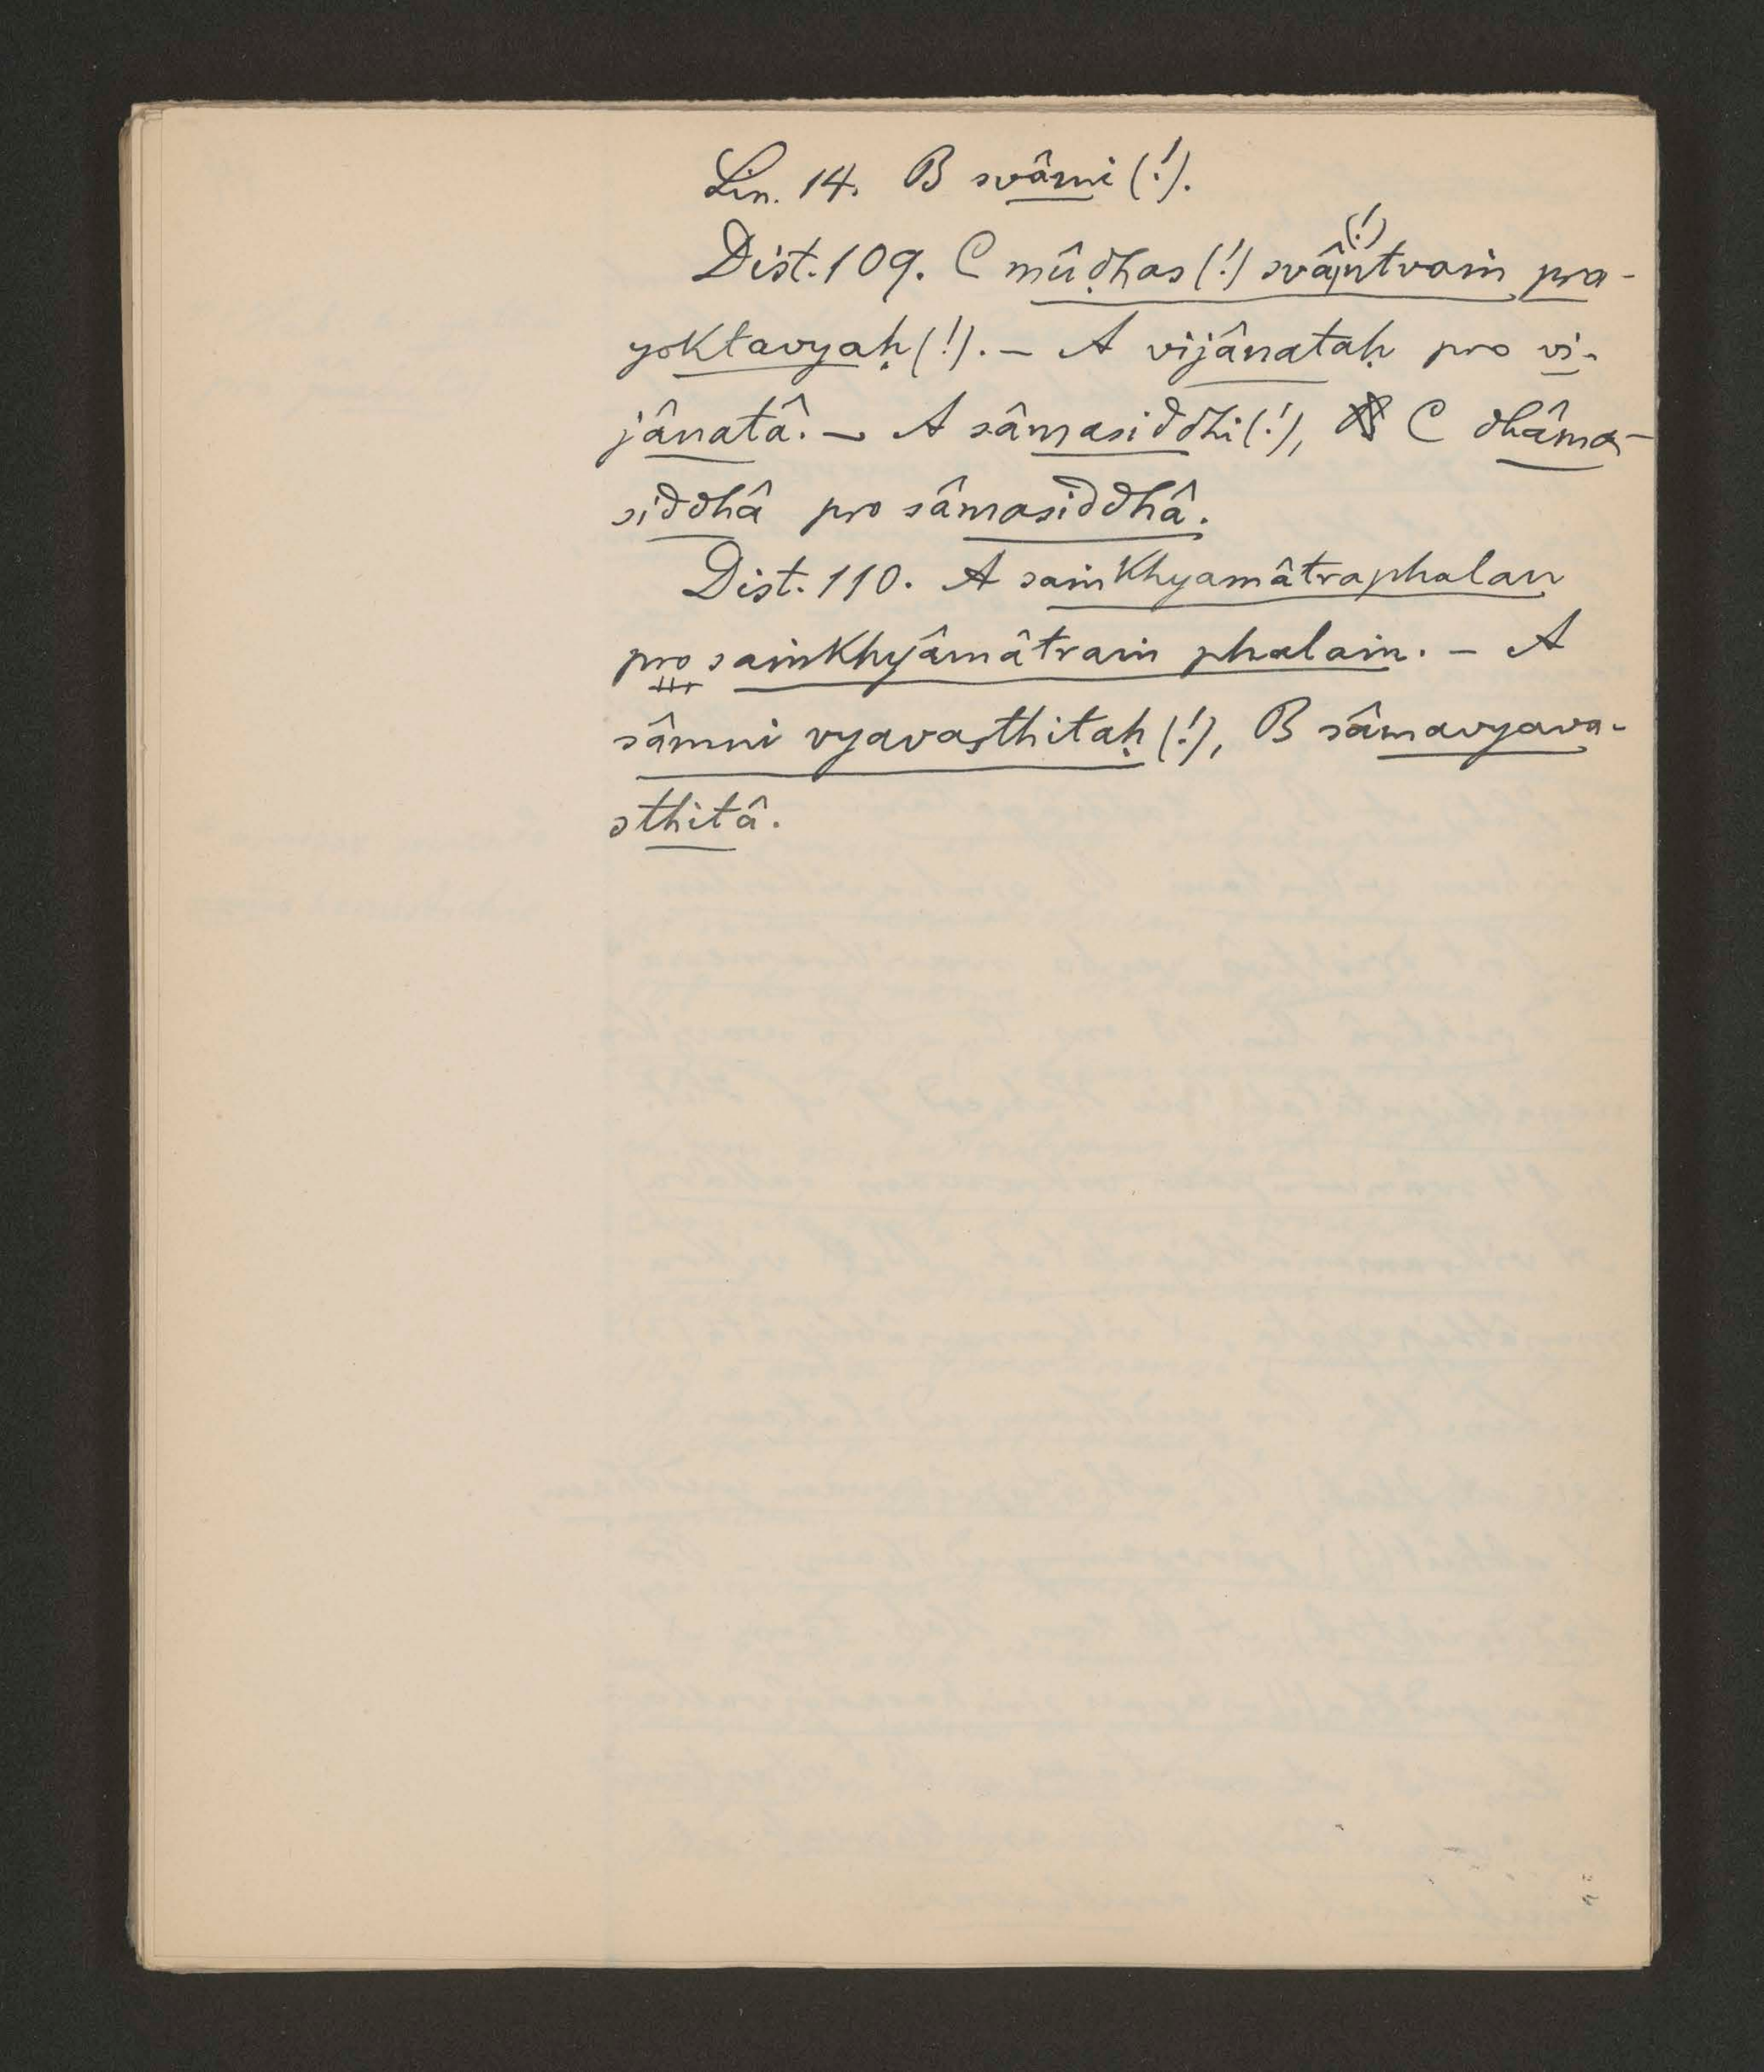 Lin. 14. B svâmi (!).
Dist. 109. C mûḍhas (!) svâṃtvaṃ (!) pra-
yoktavyaḥ (!). – A vijânataḥ pro vi-
jânatâ. – A sâmasiddhi (!), C dhâma-
siddhâ pro sâmasiddhâ.
Dist. 110. A saṁkhyamâtraphalan
pro saṁkhyâmâtraṁ phalaṁ. – A
sâmni vyavasthitaḥ (!), B sâmavyava-
sthitâ.